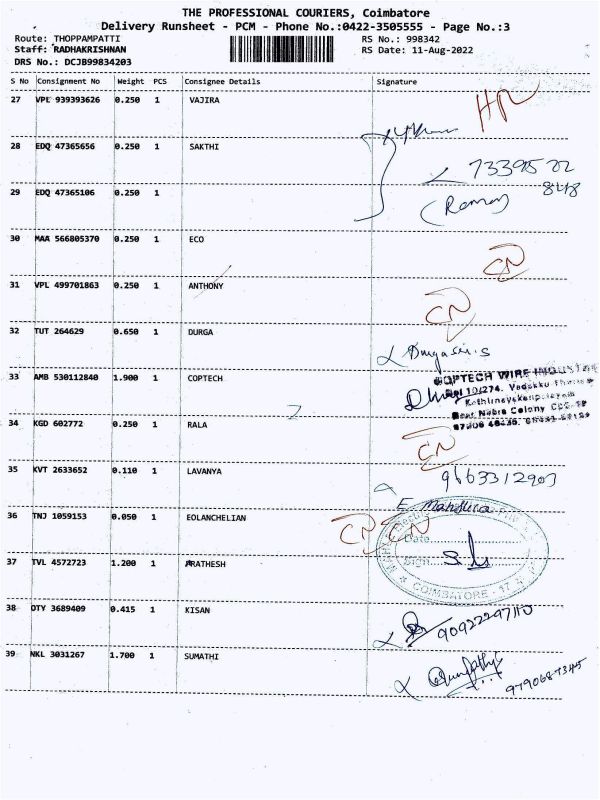 THE PROFESSIONAL COURIERS, Coimbatore
Delivery Runsheet - PCM - Phone No.:0422-3505555 - Page No.:3
Route: THOPPAMPATTI RS No.: 998342
Staff: RADHAKRISHNAN RS Date: 11-Aug-2022
DRS No.: DCJB99834203
S No Consignment No Weight PCS Consignee Details Signature
27 VPL 939393626 0.250 1 VAJIRA
28 EDQ 47365656 0.250 1 SAKTHI
73395 22
848
29 EDQ 47365106 0.250 1
(Raman)
30 MAA 566805370 0.250 1 ECO CN
31 VPL 499701863 0.250 1 ANTHONY CN
32 TUT 264629 0.650 1 DURGA Durgasri.s
33 AMB 530112840 1.900 1 COPTECH COPTECH WIRE
10/274, Vadakku
Colony
34 KGD 602772 0.250 1 RALA CN
35 KVT 2633652 0.110 1 LAVANYA 9663312903
E.
36 TNJ 1059153 0.050 1 EOLANCHELIAN CN CN
Date
37 TVL 4572723 1.200 1 ARATHESH
Sign
COIMBATORE - 17
38 OTY 3689409 0.415 1 KISAN
39 NKL 3031267 1.700 1 SUMATHI 9790687345